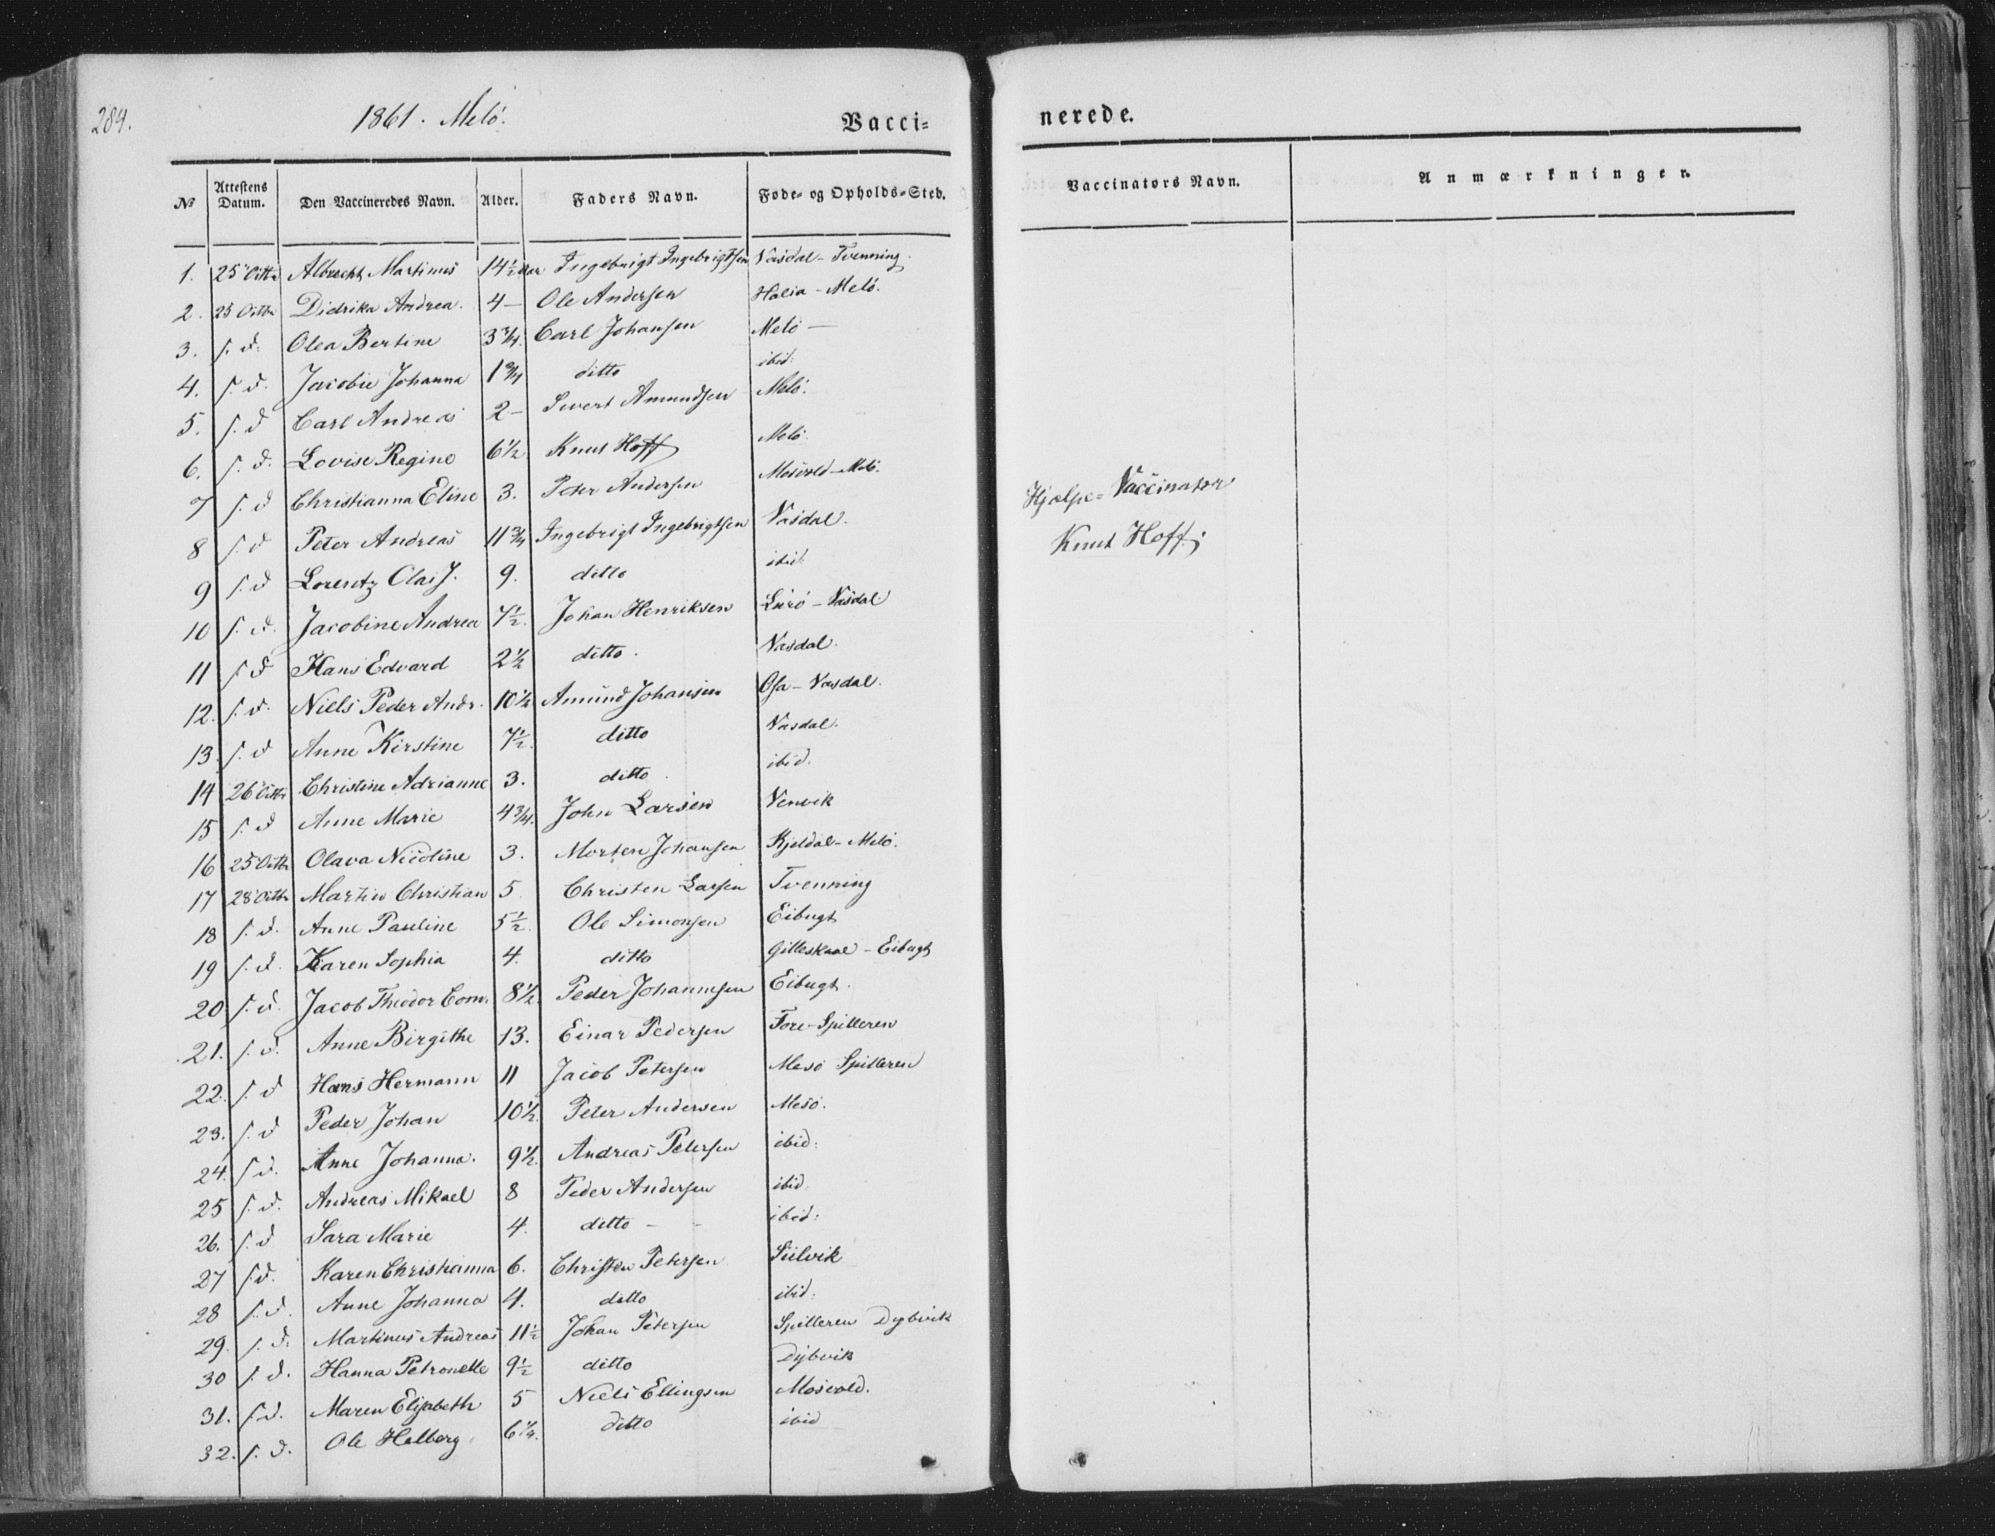 284.
1861. Melö.
Vacci= nerede.
№ | Attestens Datum. | Den Vaccineredes Navn. | Alder. | Faders Navn. | Føde- og Opholds-Sted. | Vaccinators Navn. | Anmærkninger.
1. 25 Octbr Albrecht Martinus 14½ Aar Ingebrigt Ingebrigtsen Vasdal - Tvenning.
2. 25 Octbr Didrika Andrea. 4 — Ole Andersen Halsa - Melö.
3. s. d. Olea Bertine 3 3/4. Carl Johansen Melö —
4. s. d. Jacobie Johanna 1 3/4 ditto ibid:
5. s. d Carl Andreas 2 - Sivert Amundsen Melö.
6. s. d. Lovise Regine 6½ Knut Hoff Melö.
7 s. d Christianna Eline 3. Peter Andersen Mosvold - Melö.
8 s. d Peter Andreas 11 3/4 Ingebrigt Ingebrigtsen Vasdal.
9 s. d Lorentz Clas J. 9. ditto ibid:
10 s. d. Jacobine Andrea 7½. Johan Henriksen Lurö - Vasdal.
11 s d Hans Edvard 2½ ditto. Vasdal.
12. s. d. Niels Peder Andr. 10½ Amund Johansen Osa - Vasdal.
13. s. d Anne Kirstine 7½. ditto Vasdal.
14 26 Octbr Christine Adrianne 3. ditto ibid.
15 s. d Anne Marie 4 3/4. John Larsen Venvik
16 25 Octbr Olava Nicoline 3. Morten Johansen Kjeldal - Melö.
17 28 Octbr Martin Christian 5. Christen Larsen Tvenning
18 s. d. Anne Pauline 5½. Ole Simonsen Eibugt
19 s. d. Karen Sophia 4. ditto Gilleskaal - Eibugt
20 s. d. Jacob Theodor Corn. 8½. Peder Johannesen Eibugt.
21. s. d. Anne Birgithe 13. Einar Pedersen Fore - Spilleren
22. s. d Hans Hermann 11 Jacob Petersen Mesö Spilleren
23. s. d Peder Johan 10½. Peter Andersen Mesö.
24. s d. Anne Johanna. 9½. Andreas Petersen ibid:
25 s. d. Andreas Mikael 8 Peder Andersen ibid.
26. s. d Sara Marie 4. ditto - - ibid:
27 s. d. Karen Christianna 6. Christen Petersen Sulvik
28 s. d. Anne Johanna 4. ditto ibid:
29. s. d. Martinus Andreas 11½ Johan Petersen Spilleren Dybvik
30 s. d. Hanna Petronelle 9½ ditto Dybvik
31. s d. Maren Elisabeth 5 Niels Ellingsen Mosvold.
32. s. d. Ole Halberg. 6¼. ditto ibid
Hjælpe-Vaccinator
Knut Hoff.